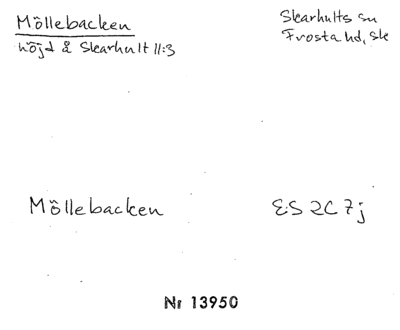 Möllebacken
Skarhults sn
höjd å Skarhult 11:3
Frosta hd, Sk
Möllebacken
ES 2C 7j
Nr 13950